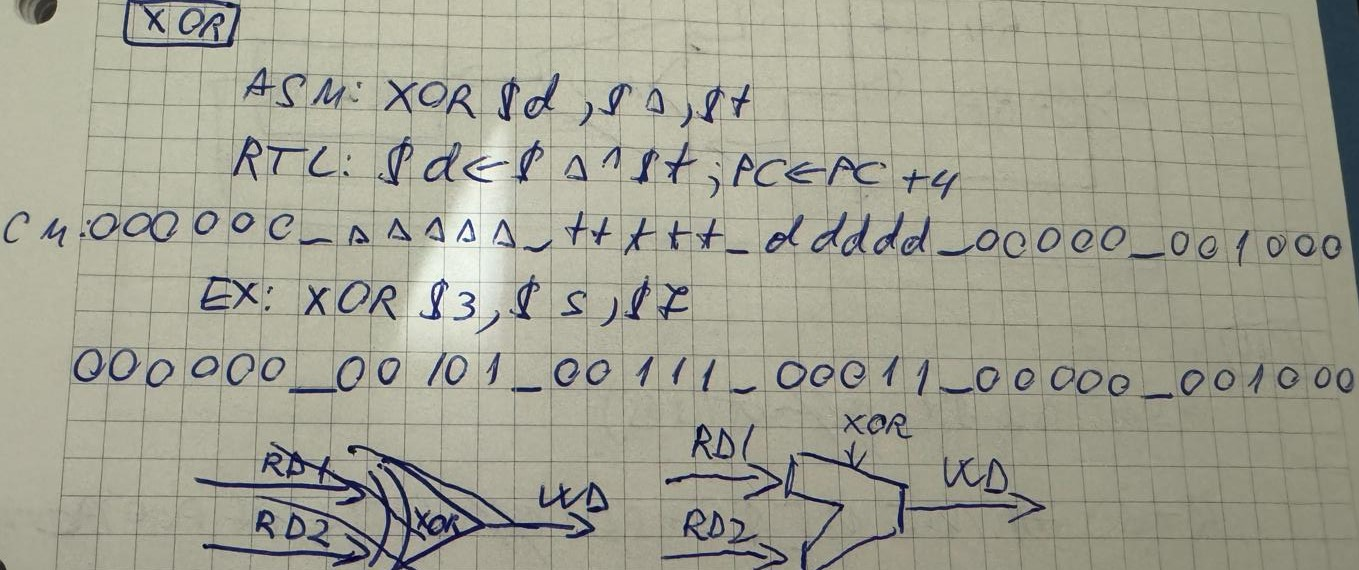 XOR
ASM: XOR $d, $s, $t
RTL: $d ← $s ^ $t; PC ← PC + 4
CM: 000000_sssss_ttttt_ddddd_00000_001000
EX: XOR $3, $5, $7
000000_00101_00111_00011_00000_001000
RD1 XOR WD
RD2
XOR
RD1 WD
RD2